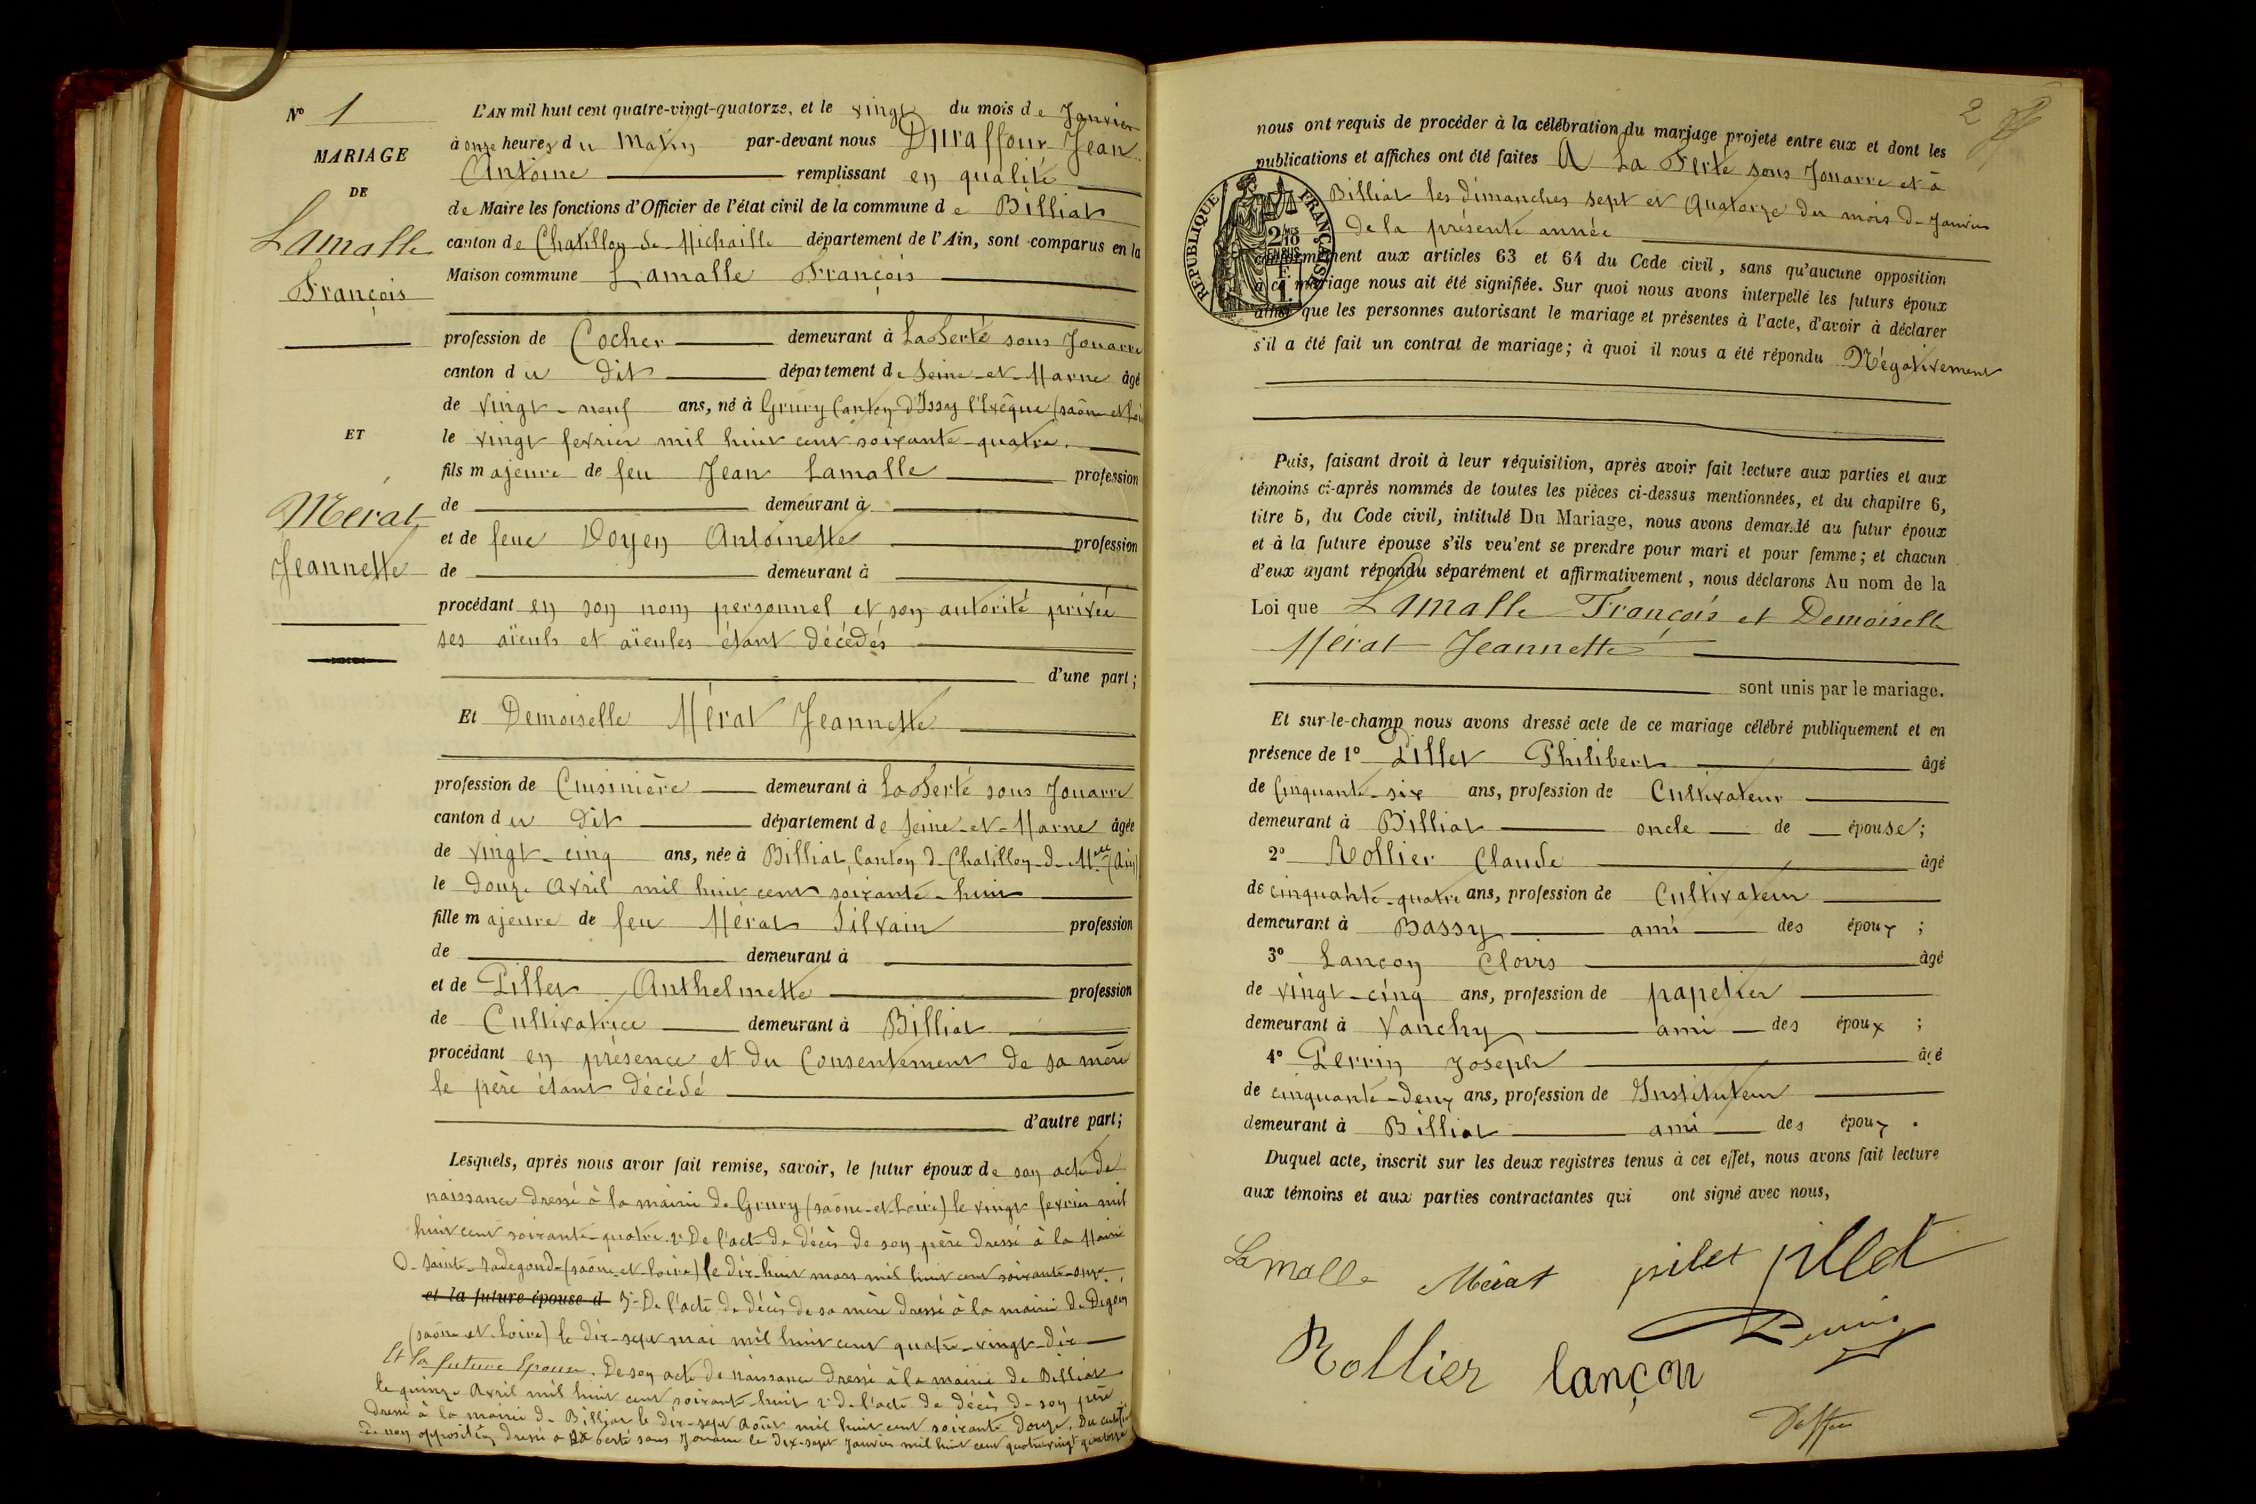 N° 1
MARIAGE
DE
Lamalle
François
ET
Mérat
Jeannette
L'AN mil huit cent quatre-vingt-quatorze, et le vingt du mois de Janvier
à onze heures du Matin par-devant nous Duraffour Jean
Antoine remplissant en qualité
de Maire les fonctions d'Officier de l'état civil de la commune de Billiat
canton de Chatillon de Michaille département de l'Ain, sont comparus en la
Maison commune Lamalle François
profession de Cocher demeurant à La Ferté sous Jouarre
canton du dit département de Seine-et-Marne âgé
de vingt-neuf ans, né à Grury Canton d'Issy l'Evêque (Saône et Loi
le vingt fevrier mil huit cent soixante-quatre.
fils majeure de feu Jean Lamalle profession
de demeurant à
et de feue Doyen Antoinette profession
de demeurant à
procédant en son nom personnel et son autorité privée
ses aïeuls et aïeules étant décédés
d'une part;
Et Demoiselle Mérat Jeannette
profession de Cuisinière demeurant à La Ferté sous Jouarre
canton du dit département de Seine-et-Marne âgée
de vingt-cinq ans, née à Billiat, Canton de Chatillon-de-Mlle (Ain)
le douze Avril mil huit cent soixante-huit
fille majeure de feu Mérat Silvain profession
de demeurant à
et de Pillet Anthelmette profession
de Cultivatrice demeurant à Billiat
procédant en présence et du Consentement de sa mère
le père étant décédé
d'autre part;
Lesquels, après nous avoir fait remise, savoir, le futur époux de son acte de
naissance dressé à la mairie de Grury (Saône-et-Loire) le vingt fevrier mil
huit cent soixante-quatre. 2° De l'acte de décès de son père dressé à la Mairie
de Sainte-Radegonde (Saône-et-Loire) le dix-huit mars mil huit cent soixante-onze.
et la future épouse d 3° De l'acte de décès de sa mère dressé à la mairie de Digoin
(Saône-et-Loire) le dix-sept mai mil huit cent quatre-vingt-dix
Et la future Epouse. De son acte de naissance dressé à la mairie de Billiat
le quinze Avril mil huit cent soixante-huit 2° De l'acte de décès de son père
dressé à la mairie de Billiat le dix-sept Août mil huit cent soixante douze. Du certificat
de non opposition dressé à La Ferté sous Jouarre le dix-sept Janvier mil huit cent quatrevingt quatorze
2
nous ont requis de procéder à la célébration du mariage projeté entre eux et dont les
publications et affiches ont été faites A La Ferté sous Jouarre et à
Billiat les dimanches sept et Quatorze du mois de Janvier
de la présente année
RÉPUBLIQUE FRANÇAISE
2/10 EN SUS
F. 1.
conformément aux articles 63 et 64 du Code civil, sans qu'aucune opposition
à ce mariage nous ait été signifiée. Sur quoi nous avons interpellé les futurs époux
ainsi que les personnes autorisant le mariage et présentes à l'acte, d'avoir à déclarer
s'il a été fait un contrat de mariage; à quoi il nous a été répondu Négativement
Puis, faisant droit à leur réquisition, après avoir fait lecture aux parties et aux
témoins ci-après nommés de toutes les pièces ci-dessus mentionnées, et du chapitre 6,
titre 5, du Code civil, intitulé Du Mariage, nous avons demandé au futur époux
et à la future épouse s'ils veulent se prendre pour mari et pour femme; et chacun
d'eux ayant répondu séparément et affirmativement, nous déclarons Au nom de la
Loi que Lamalle François et Demoiselle
Mérat Jeannette
sont unis par le mariage.
Et sur-le-champ nous avons dressé acte de ce mariage célébré publiquement et en
présence de 1° Pillet Philibert âgé
de Cinquante-six ans, profession de Cultivateur
demeurant à Billiat oncle de épouse;
2° Rollier Claude âgé
de cinquante-quatre ans, profession de Cultivateur
demeurant à Bassy ami des époux;
3° Lançon Clovis âgé
de vingt-cinq ans, profession de papetier
demeurant à Vanchy ami des époux;
4° Perrin Joseph âgé
de cinquante-deux ans, profession de Instituteur
demeurant à Billiat ami des époux.
Duquel acte, inscrit sur les deux registres tenus à cet effet, nous avons fait lecture
aux témoins et aux parties contractantes qui ont signé avec nous,
Lamalle Mérat pilet pillet
Perrin
Rollier lançon